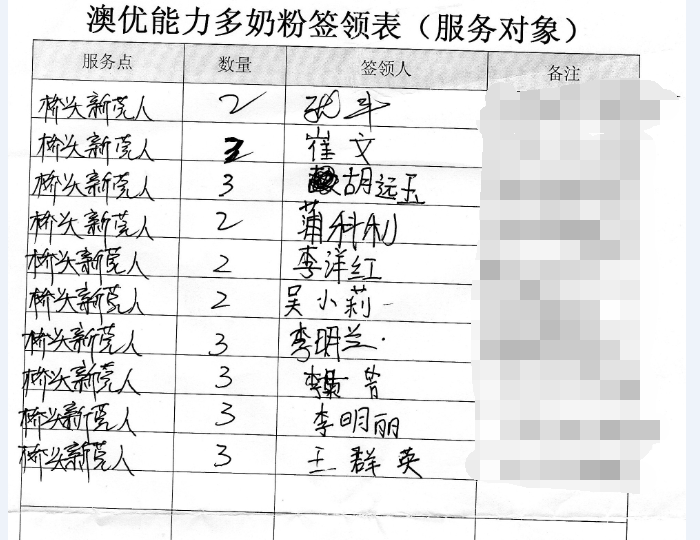 澳优能力多奶粉签领表（服务对象）
服务点 数量 签领人 备注
桥头新莞人 2
桥头新莞人 崔文
桥头新莞人 3 胡远玉
桥头新莞人 2 蒲科利
桥头新莞人 2 李洋红
桥头新莞人 2 吴小莉
桥头新莞人 3 李明兰
桥头新莞人 3
桥头新莞人 3 李明丽
桥头新莞人 3 王群英